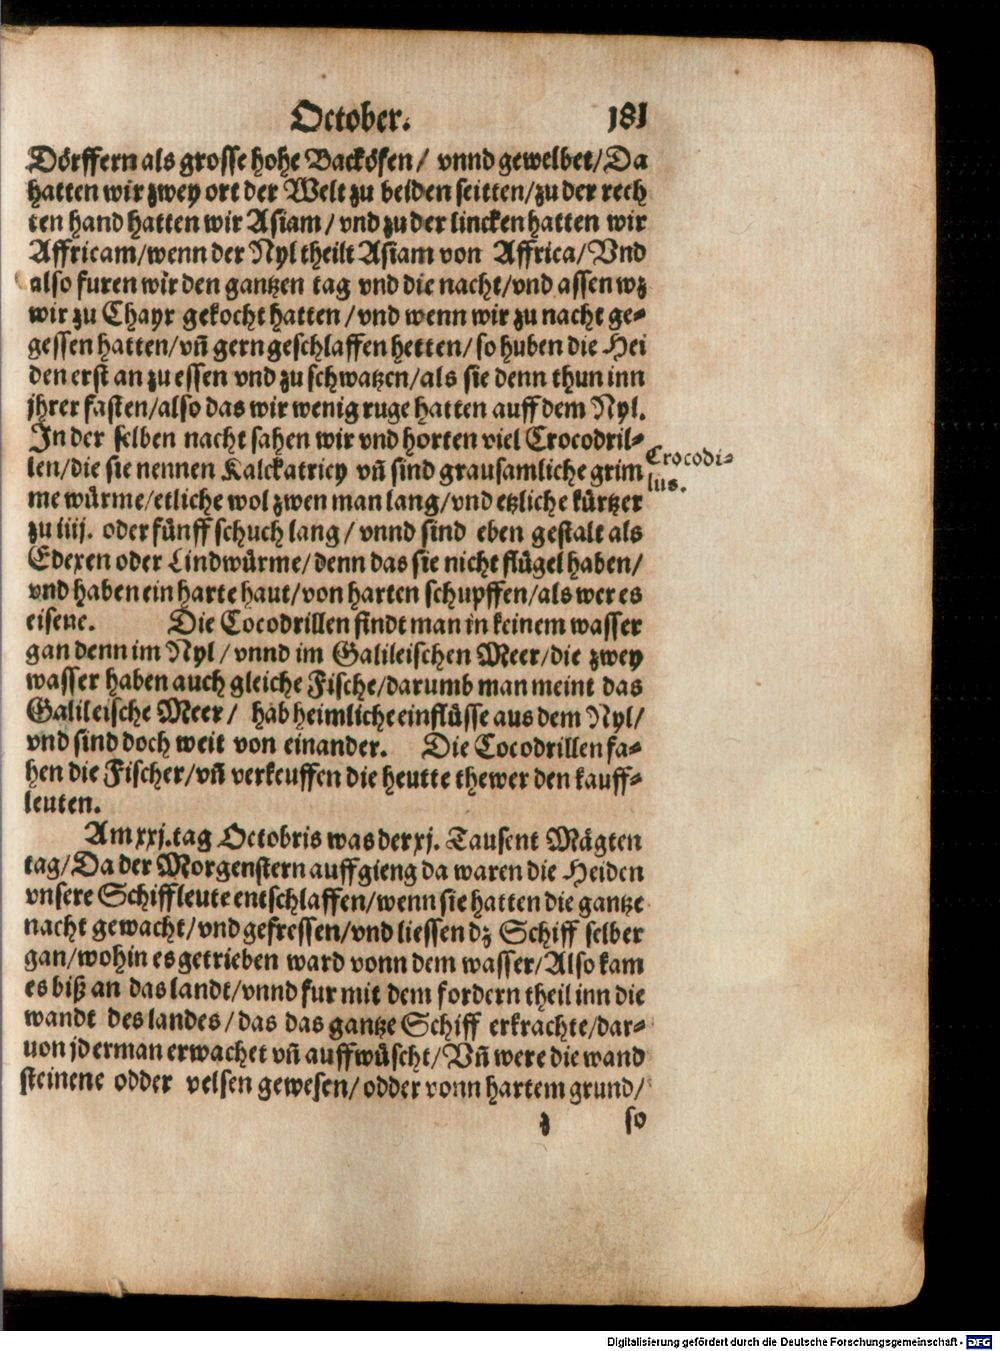 October. 181
Dörffern als grosse hohe Backöfen/ vnnd gewelbet/Da
hatten wir zwey ort der Welt zu beiden seitten/zu der rech
ten hand hatten wir Asiam/ vnd zu der lincken hatten wir
Affricam/wenn der Nyl theilt Asiam von Affrica/Vnd
also furen wir den gantzen tag vnd die nacht/vnd assen wz
wir zu Chayr gekocht hatten/vnd wenn wir zu nacht ge-
gessen hatten/vñ gern geschlaffen hetten/ so huben die Hei
den erst an zu essen vnd zu schwatzen/als sie denn thun inn
jhrer fasten/also das wir wenig ruge hatten auff dem Nyl.
In der selben nacht sahen wir vnd horten viel Crocodril-
len/die sie nennen Kalckatricy vñ sind grausamliche grim
me würme/etliche wol zwen man lang/vnd etzliche kürtzer
zu iiij. oder fünff schuch lang/ vnnd sind eben gestalt als
Edexen oder Lindwürme/denn das sie nicht flügel haben/
vnd haben ein harte haut/von harten schupffen/als wer es
eisene. Die Cocodrillen findt man in keinem wasser
gan denn im Nyl/vnnd im Galileischen Meer/die zwey
wasser haben auch gleiche Fische/darumb man meint das
Galileische Meer/ hab heimliche einflüsse aus dem Nyl/
vnd sind doch weit von einander. Die Cocodrillen fa-
hen die Fischer/vñ verkeuffen die heutte thewer den kauff-
leuten.
Crocodi-
lus.
Am xxj.tag Octobris was der xj. Tausent Mägten
tag/Da der Morgenstern auffgieng da waren die Heiden
vnsere Schiffleute entschlaffen/wenn sie hatten die gantze
nacht gewacht/vnd gefressen/vnd liessen dz Schiff selber
gan/wohin es getrieben ward vonn dem wasser/Also kam
es biß an das landt/vnnd fur mit dem fordern theil inn die
wandt des landes/das das gantze Schiff erkrachte/dar-
uon jderman erwachet vñ auffwüscht/Vñ were die wand
steinene odder velsen gewesen/odder vonn hartem grund/
z so
Digitalisierung gefördert durch die Deutsche Forschungsgemeinschaft - DFG